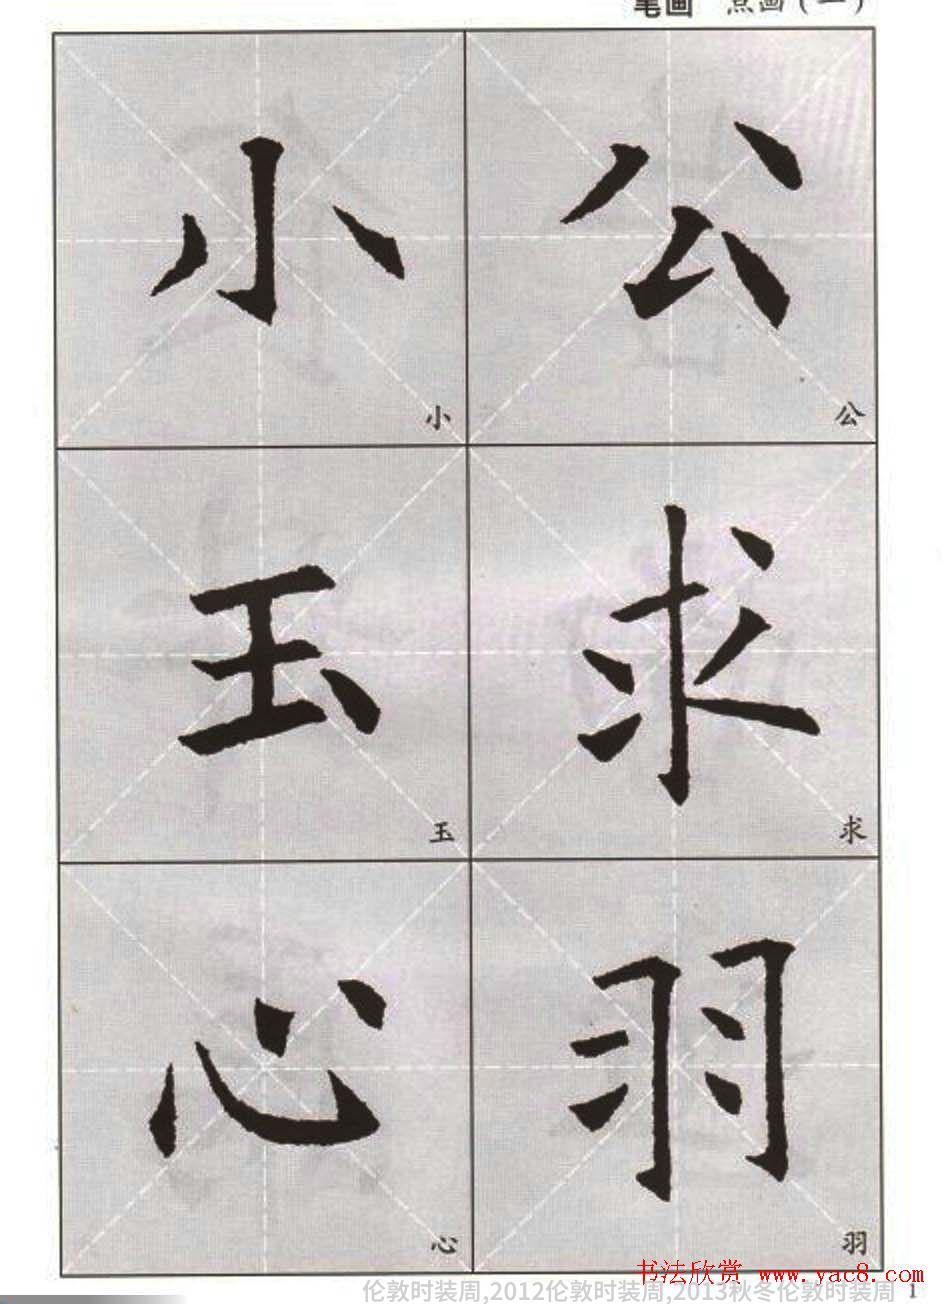 笔画 点画(一)
小 公
小 公
玉 求
玉 求
心 羽
心 羽
书法欣赏 www.yac8.com
伦敦时装周,2012伦敦时装周,2013秋冬伦敦时装周 1